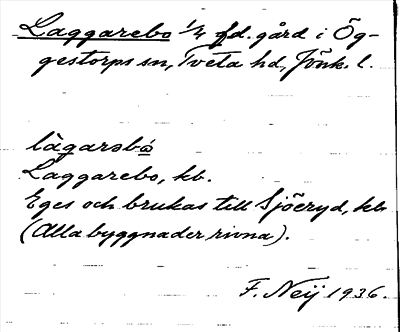 Laggarebo 1/4 fd. gård i Ög-
gestorps sn, Tveta hd, Jönk. l.
làgarsbo
Laggarebo, kb.
Eges och brukas till Sjöeryd, kb
(Alla byggnader rivna).
F. Neij 1936.